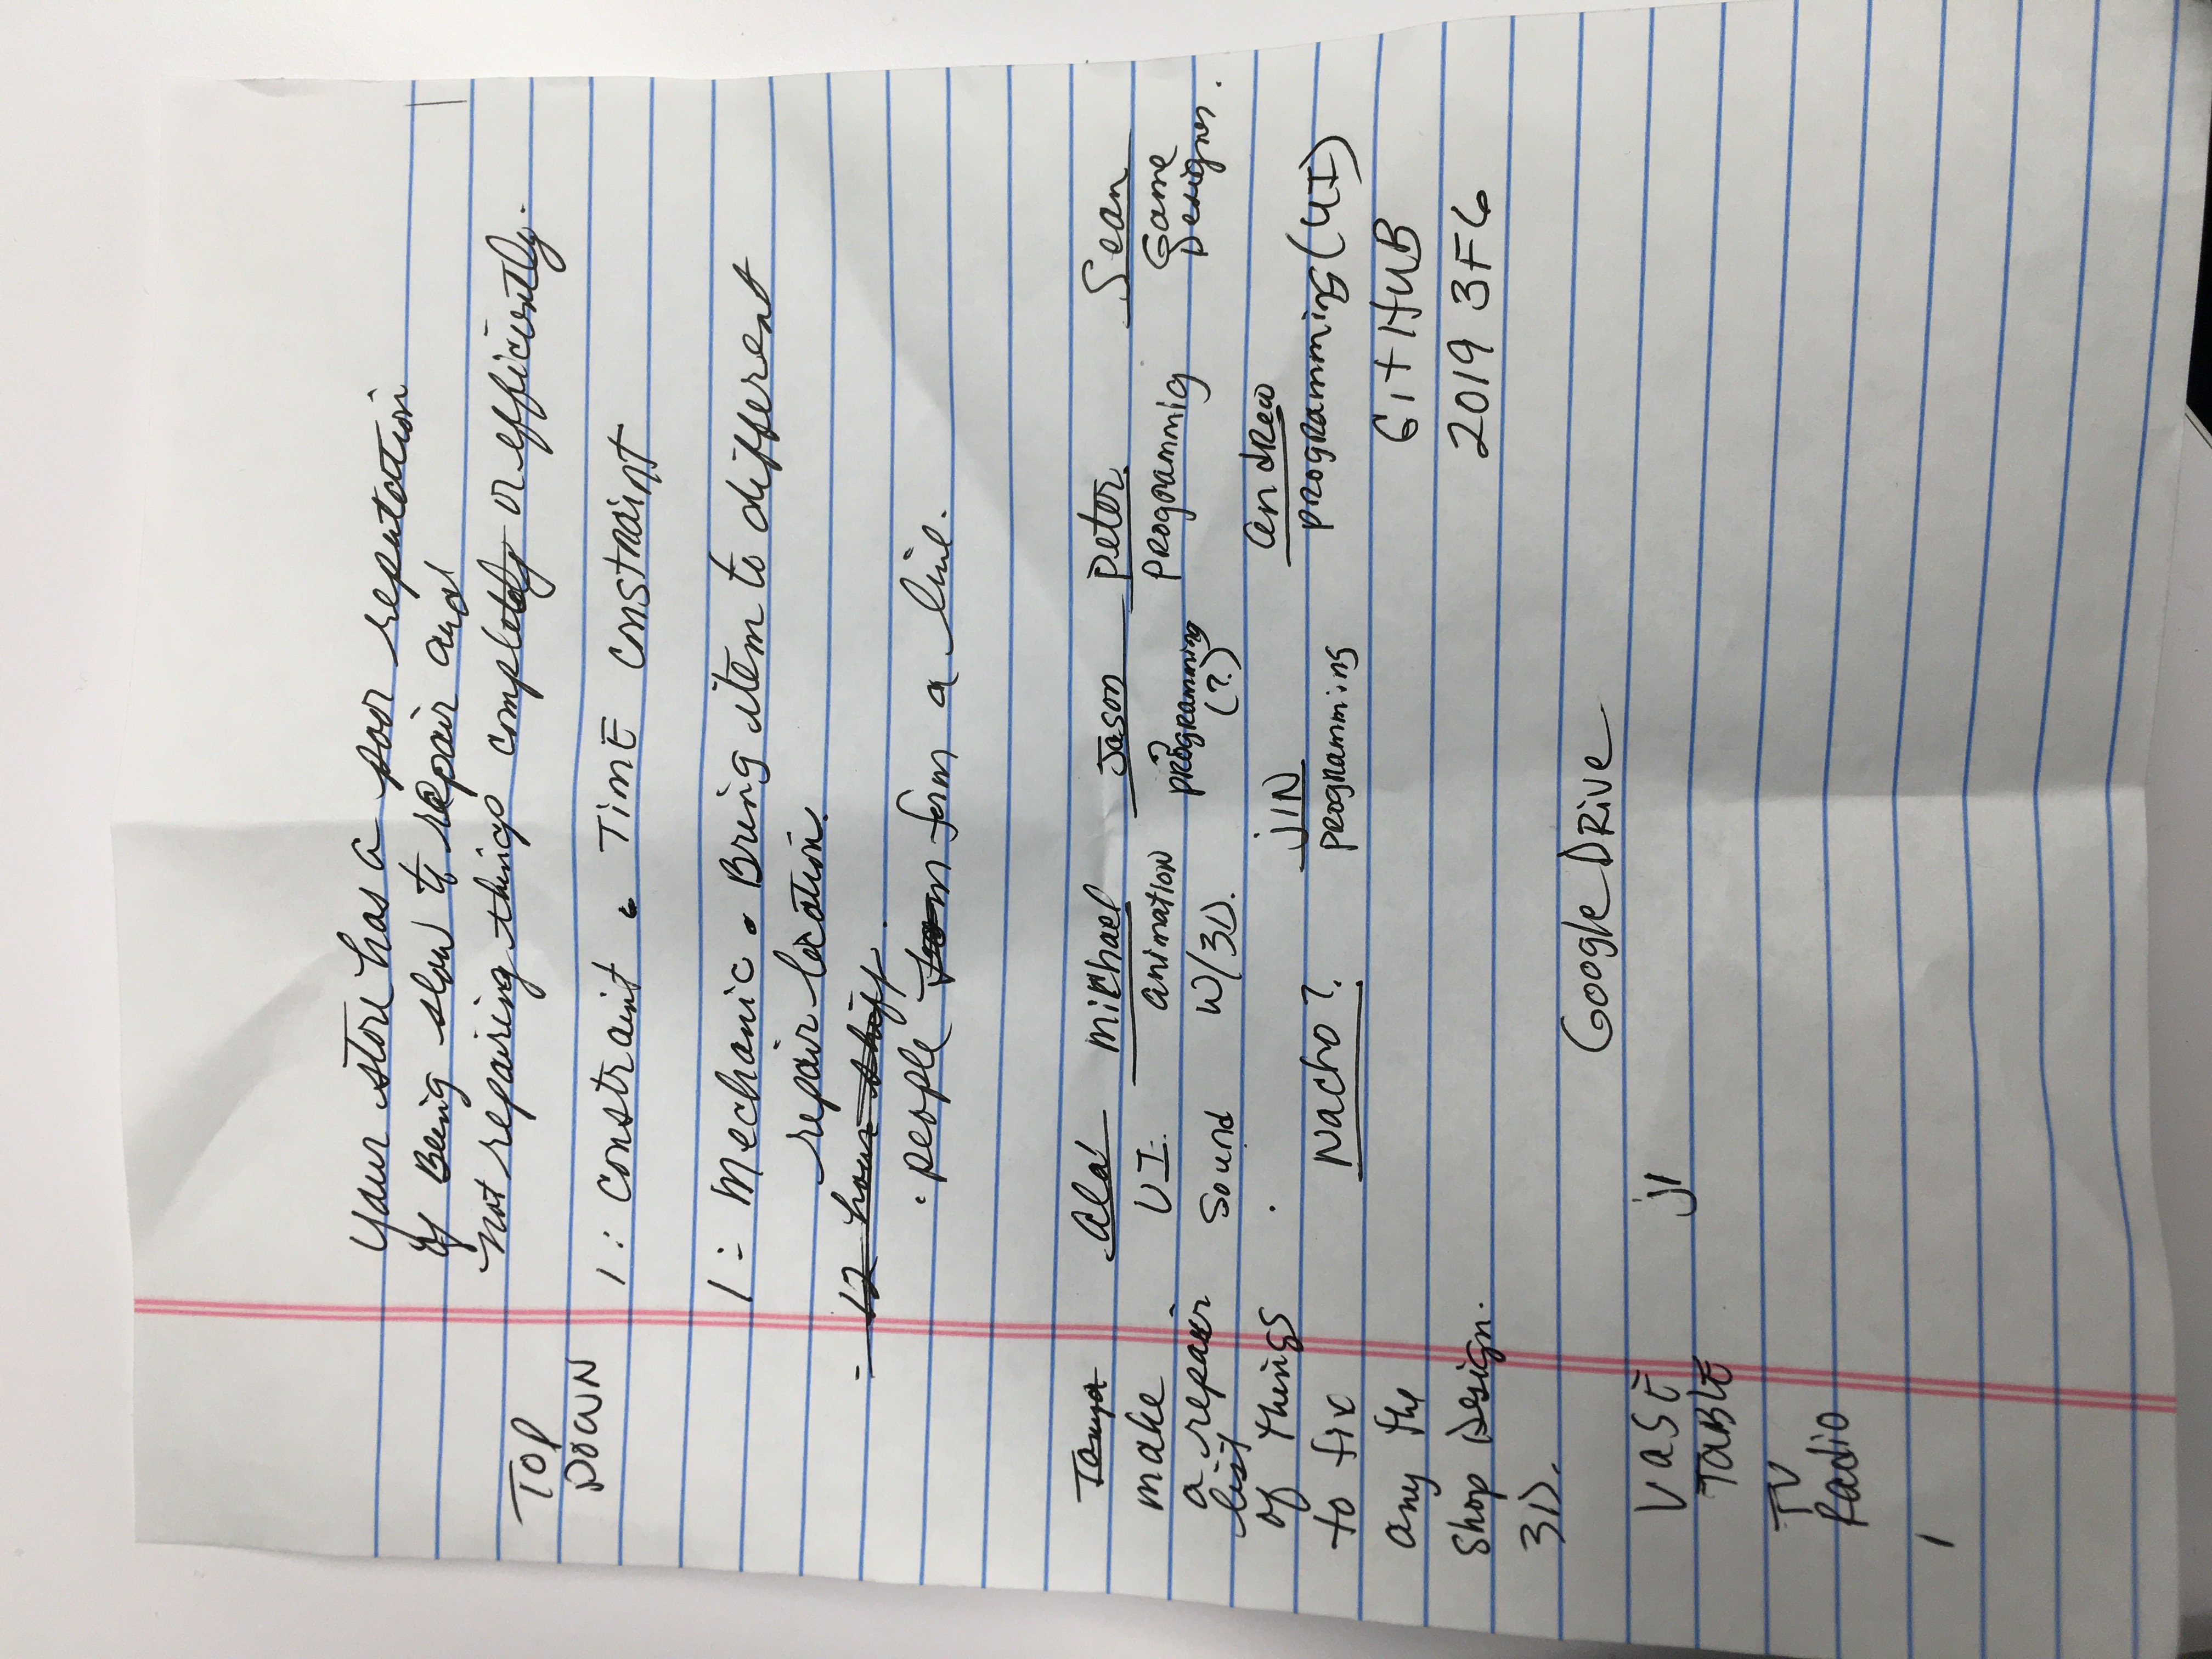 Your store has a poor reputation
of Being slow to repair and
not repairing things completely or efficiently.
TOP
DOWN
1: constraint • TIME constraint
1: Mechanic • Bring item to different
repair location.
- 12 hour shift.
• people form a line.
Tanya
make
a repair
list
of things
to fix
any the
Shop Design.
3D.
Ala'
UI.
Sound
Michael
animation
W/3D.
Jason
?
programming
(?)
Peter.
Programmig
Sean
Game
Designer.
Nacho?
JIN
programming
andrew
programming (UI)
GitHUB
2019 3F6
Google Drive
VASE
TABLE
ji
TV
Radio